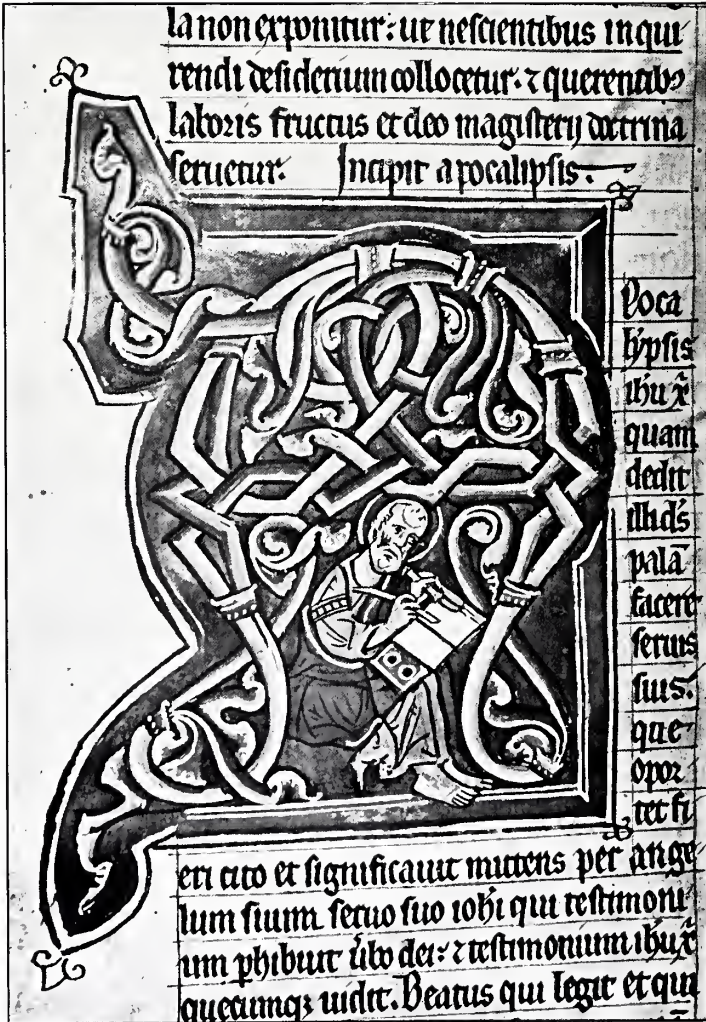 la non exponitur: ut nescientibus inqui
rendi desiderium collocetur. ⁊ querentibꝰ
laboris fructus et deo magisterij doctrina
seruetur. Incipit apocalipsis.
Poca
lypsis
ihu xp̄
quam
dedit
illi d̄s
palā
facere
seruis
suis.
que
opor
tet fi
eri cito et significauit mittens per ange
lum suum seruo suo iohi qui testimoni
um phibuit ūbo dei: ⁊ testimonium ihu xp̄
quecumqꝫ uidit. Beatus qui legit et qui